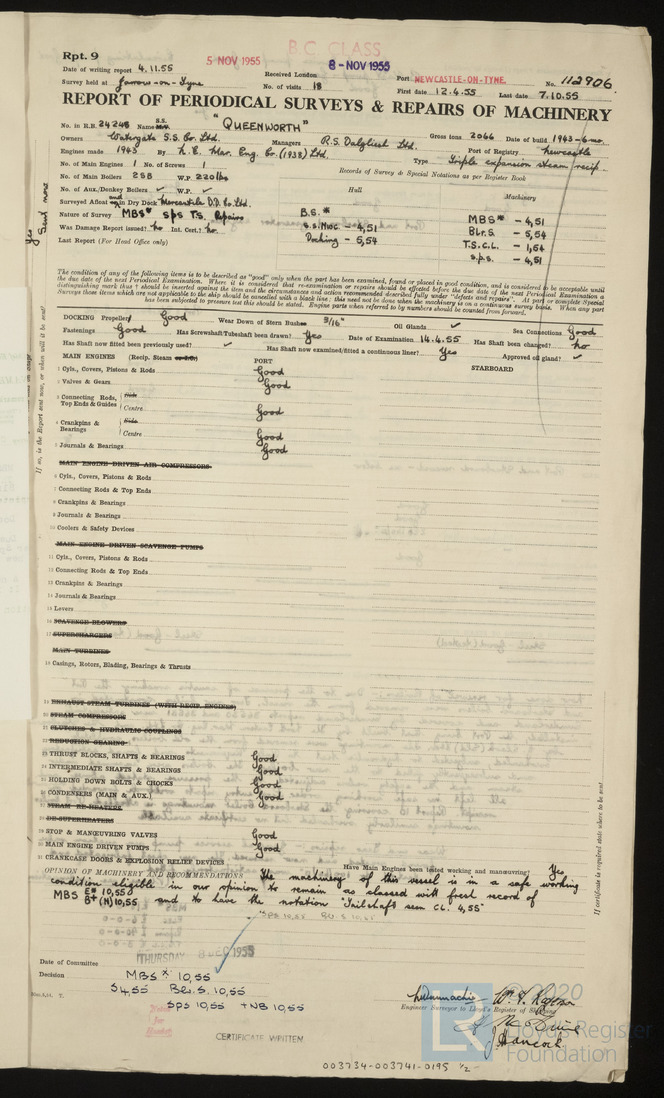 B.C. CLASS
Rpt. 9
5 NOV 1955
8 - NOV 1955
Date of writing report 4.11.55
Received London
Port NEWCASTLE-ON-TYNE.
No. 112906
Survey held at Jarrow-on-Tyne
No. of visits 18
First date 12.4.55
Last date 7.10.55
REPORT OF PERIODICAL SURVEYS & REPAIRS OF MACHINERY
No. in R.B. 24248 S.S. Name "QUEENWORTH"
Gross tons 2066 Date of build 1943-6 mo.
Owners Watergate S.S. Co. Ltd. Managers R.S. Dalgliesh Ltd. Port of Registry Newcastle
Engines made 1943 By N.E. Mar. Eng. Co. (1938) Ltd. Type Triple expansion steam recip.
No. of Main Engines 1 No. of Screws 1
Records of Survey & Special Notations as per Register Book
No. of Main Boilers 2SB W.P. 220 lbs
No. of Aux./Donkey Boilers ✓ W.P. ✓
Hull
Machinery
Surveyed Afloat and in Dry Dock Mercantile D.D. Co. Ltd.
Nature of Survey MBS* SPS T.S. Repairs
B.S.*
MBS* - 4,51
Was Damage Report issued? No Int. Cert.? No
S.S. No C. - 4,51
BLr.S. - 5,54
Last Report (For Head Office only)
Docking - 5,54
T.S.C.L. - 1,54
S.P.S. - 4,51
Yes
Send now
If so, is the Report sent now, or when will it be sent?
The condition of any of the following items is to be described as "good" only when the part has been examined, found or placed in good condition, and is considered to be acceptable until
the due date of next Periodical Examination. Where it is considered that re-examination or repairs should be effected before the due date of the next Periodical Examination a
distinguishing mark thus † should be inserted against the item and the circumstances and action recommended described fully under "defects and repairs". At part or complete Special
Surveys those items which are not applicable to the ship should be cancelled with a black line; this need not be done when the machinery is on a continuous survey basis. When any part
has been subjected to pressure test this should be stated. Engine parts when referred to by numbers should be counted from forward.
DOCKING Propeller Good Wear Down of Stern Bushes 3/16" Oil Glands ✓ Sea Connections Good
Fastenings Good Has Screwshaft/Tubeshaft been drawn? Yes Date of Examination 14.4.55 Has Shaft been changed? No
Has Shaft now fitted been previously used? ✓ Has Shaft now examined/fitted a continuous liner? Yes Approved oil gland? ✓
MAIN ENGINES (Recip. Steam or I.C.)
PORT
STARBOARD
1 Cyls., Covers, Pistons & Rods Good
2 Valves & Gears Good
3 Connecting Rods, Top Ends & Guides Side
Centre Good
4 Crankpins & Bearings Side
Centre Good
5 Journals & Bearings Good
MAIN ENGINE DRIVEN AIR COMPRESSORS
6 Cyls., Covers, Pistons & Rods
7 Connecting Rods & Top Ends
8 Crankpins & Bearings
9 Journals & Bearings
10 Coolers & Safety Devices
MAIN ENGINE DRIVEN SCAVENGE PUMPS
11 Cyls., Covers, Pistons & Rods
12 Connecting Rods & Top Ends
13 Crankpins & Bearings
14 Journals & Bearings
15 Levers
16 SCAVENGE BLOWERS
17 SUPERCHARGERS
MAIN TURBINES
18 Casings, Rotors, Blading, Bearings & Thrusts
19 EXHAUST STEAM TURBINES (WITH RECIP. ENGINES)
20 STEAM COMPRESSORS
21 CLUTCHES & HYDRAULIC COUPLINGS
22 REDUCTION GEARING
23 THRUST BLOCKS, SHAFTS & BEARINGS Good
24 INTERMEDIATE SHAFTS & BEARINGS Good
25 HOLDING DOWN BOLTS & CHOCKS Good
26 CONDENSERS (MAIN & AUX.) Good
27 STEAM RE-HEATERS
28 DE-SUPERHEATERS
29 STOP & MANŒUVRING VALVES Good
30 MAIN ENGINE DRIVEN PUMPS Good
31 CRANKCASE DOORS & EXPLOSION RELIEF DEVICES
Have Main Engines been tested working and manœuvring? Yes
If certificate is required state where to be sent
OPINION OF MACHINERY AND RECOMMENDATIONS The machinery of this vessel is in a safe working
condition eligible in our opinion to remain as classed with fresh record of
MBS E* 10,55 B+ (N) 10,55 and to have the notation "Tail shaft seen CL. 4,55"
"SPS 10,55 BLr.S 10,55"
Date of Committee THURSDAY 1955
Decision MBS* 10,55
S 4,55 BLr.S. 10,55
SPS 10,55 + NB 10,55
Engineer Surveyor to Lloyd's Register of Shipping
Hancock
CERTIFICATE WRITTEN
LR
© 2020
Lloyd's Register
Foundation
003734-003741-0195 1/2